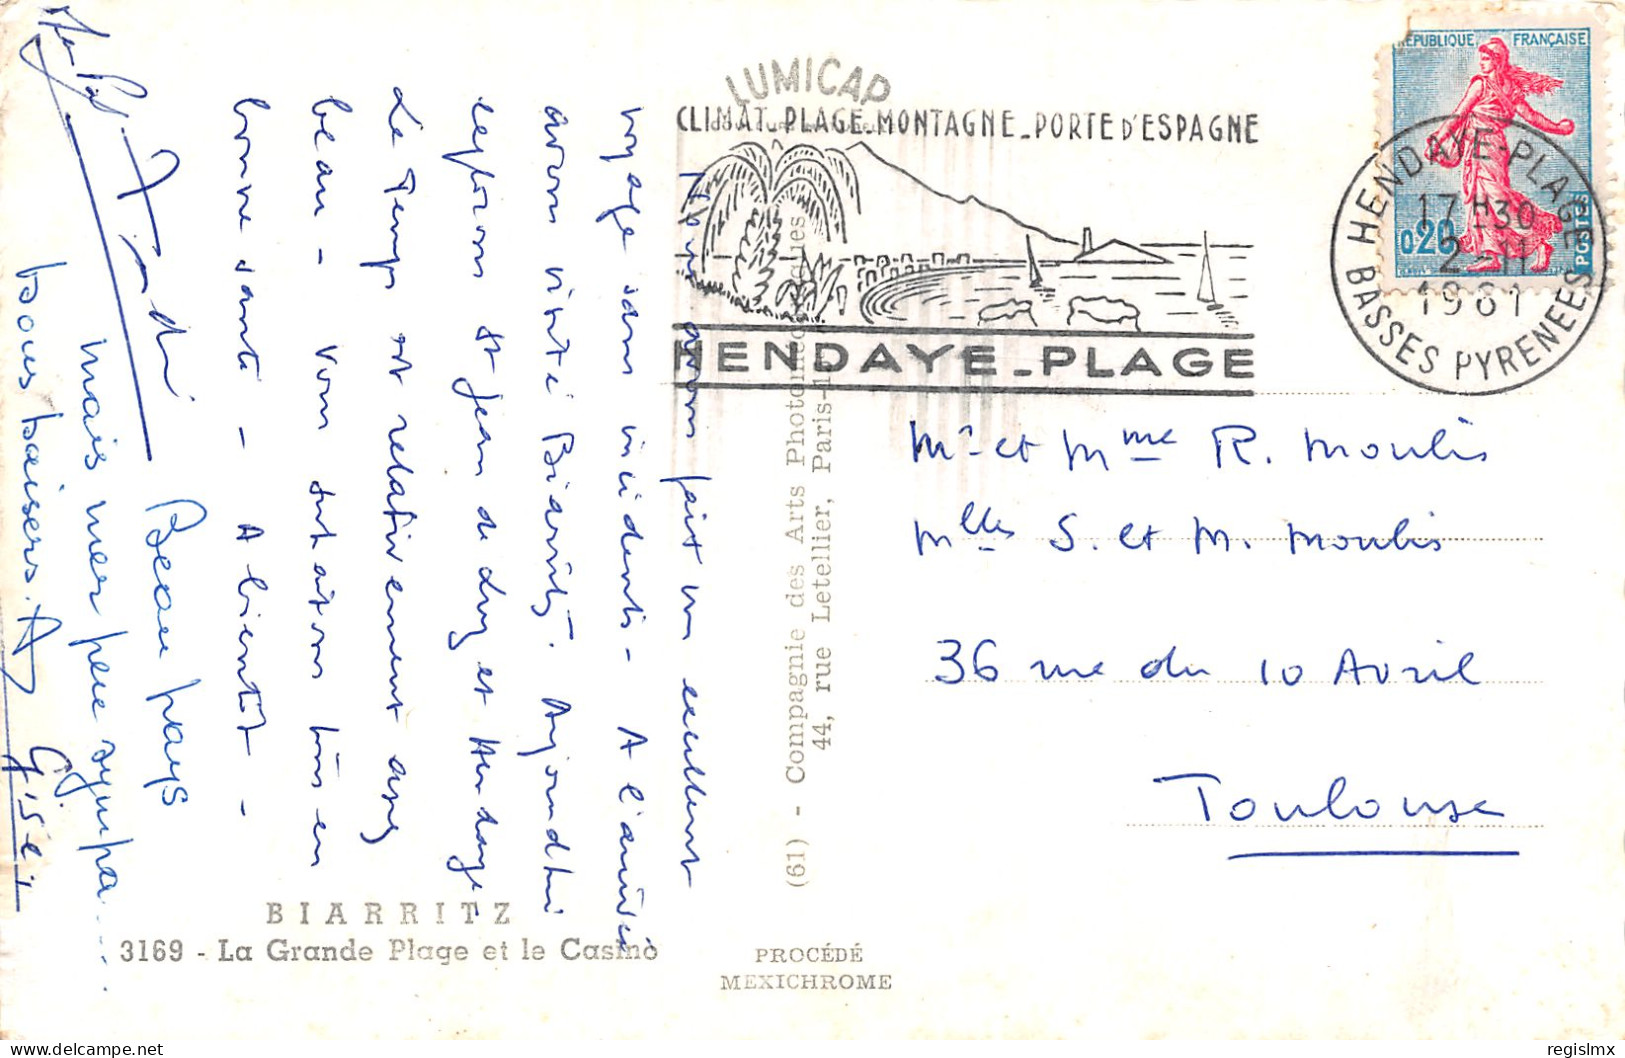 LUMICAP
CLIMAT_PLAGE_MONTAGNE_PORTE D'ESPAGNE
HENDAYE_PLAGE
REPUBLIQUE FRANÇAISE
0,20
POSTES
HENDAYE-PLAGE
17 H30
2-11
1961
BASSES PYRENEES
Mr et Mme R. Moulis
Mlles S. et M. Moulis
36 rue du 10 Avril
Toulouse
Nous avons fait un excellent
voyage sans incidents - A l'arrivée
avons visité Biarritz. Aujourd'hui
explorons St Jean de Luz et Hendaye
Le Temps est relativement assez
beau - Vous souhaitons tous en
bonne santé - A bientôt -
Beau pays
mais mer peu sympa....
Gros baisers.
Gisèle
BIARRITZ
3169 - La Grande Plage et le Casino
(61) - Compagnie des Arts Photomécaniques
44, rue Letellier, Paris-1
PROCÉDÉ
MEXICHROME
delcampe.net
regislmx